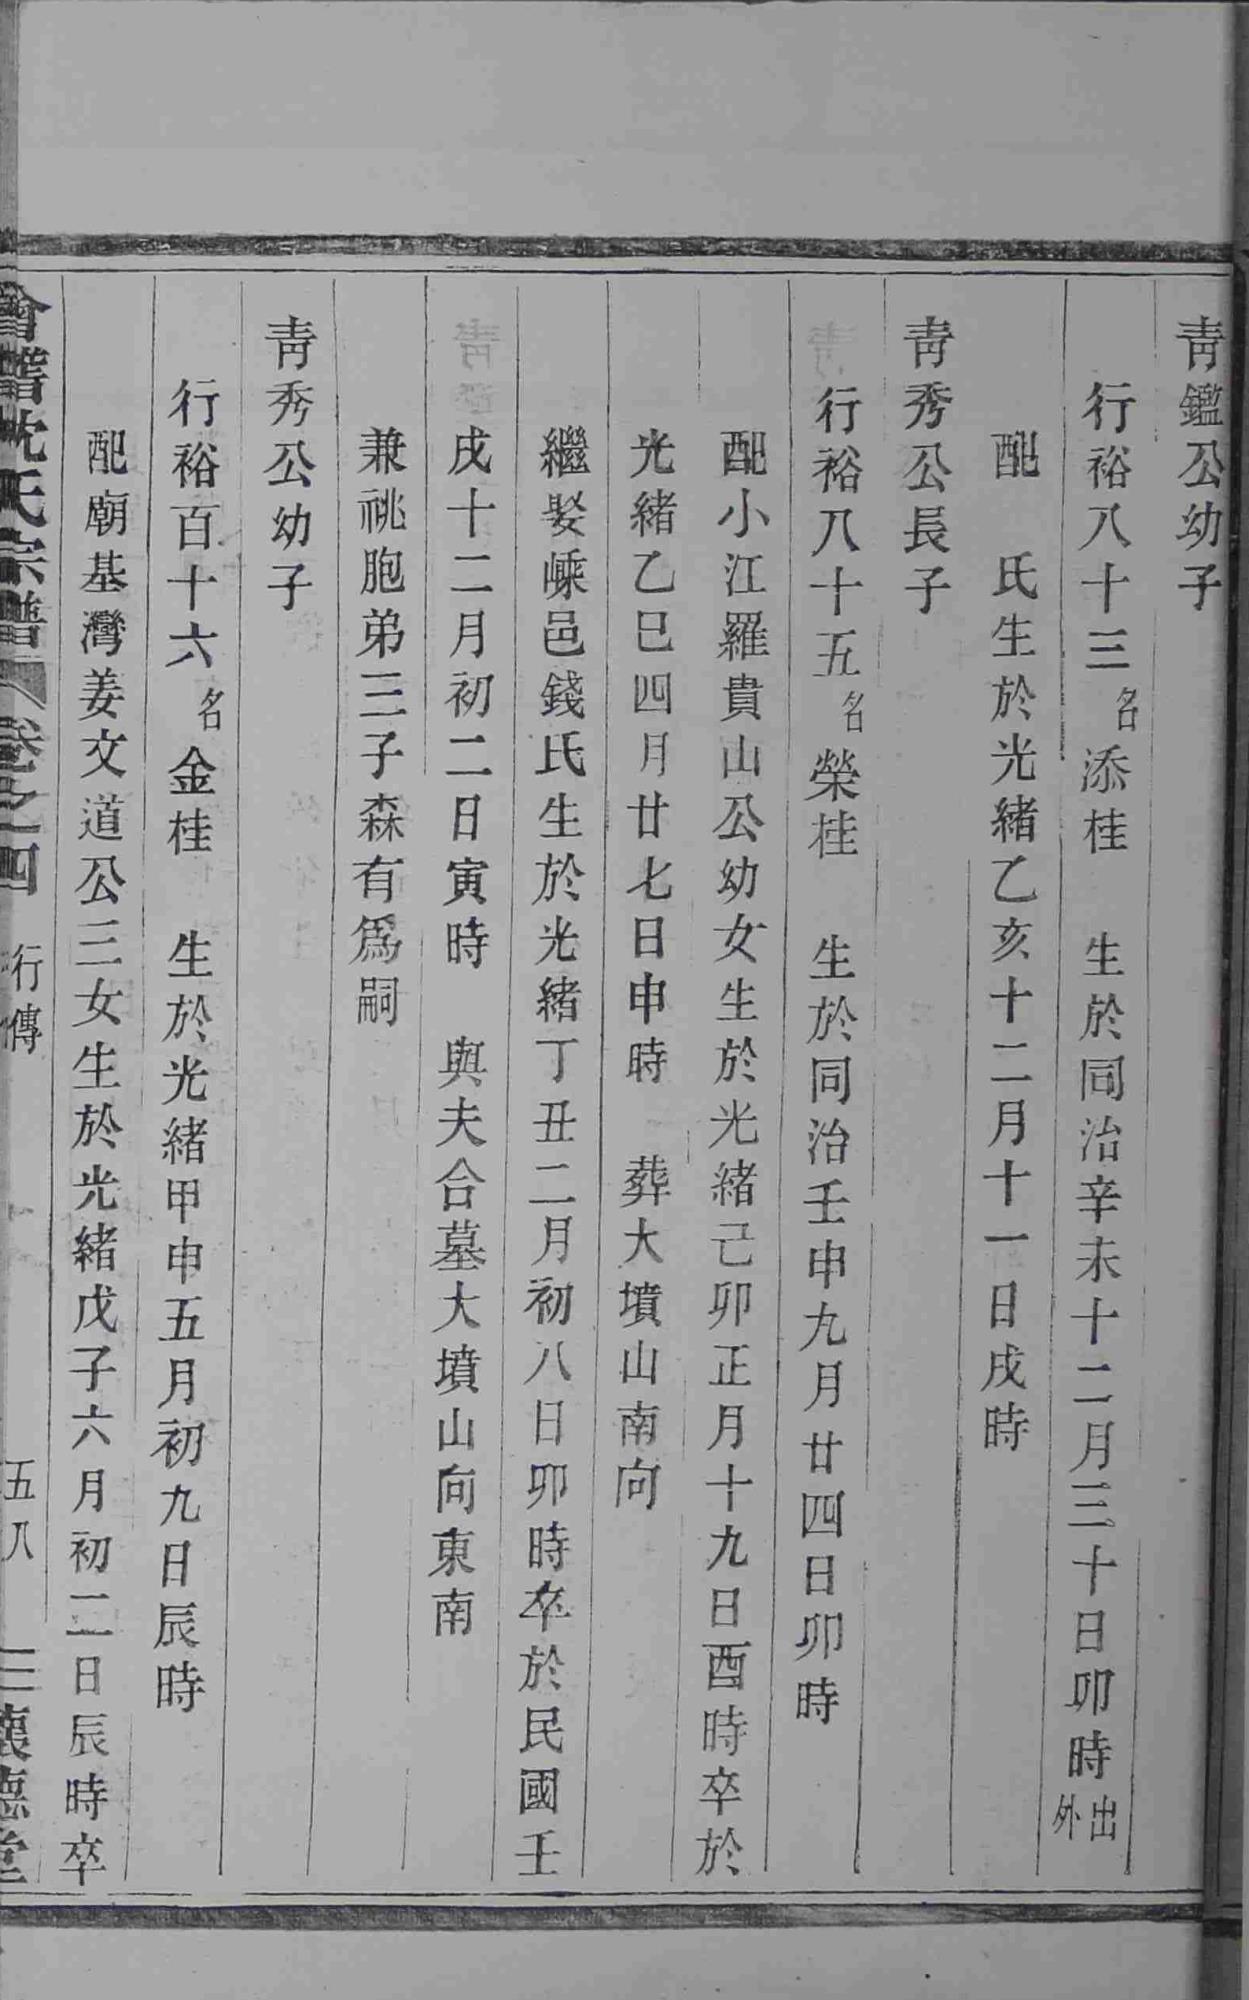 靑鑑公幼子
行裕八十三名添桂　生於同治辛未十二月三十日卯時出外
配　氏生於光緒乙亥十二月十一日戌時
靑秀公長子
行裕八十五名榮桂　生於同治壬申九月廿四日卯時
配小江羅貴山公幼女生於光緒己卯正月十九日酉時卒於
光緒乙巳四月廿七日申時　葬大墳山南向
繼娶嵊邑錢氏生於光緒丁丑二月初八日卯時卒於民國壬
戌十二月初二日寅時　與夫合墓大墳山向東南
兼祧胞弟三子森有爲嗣
靑秀公幼子
行裕百十六名金桂　生於光緒甲申五月初九日辰時
配廟基灣姜文道公三女生於光緒戊子六月初二日辰時卒
會稽沈氏宗譜　卷之四　行傳　五八　三懷德堂